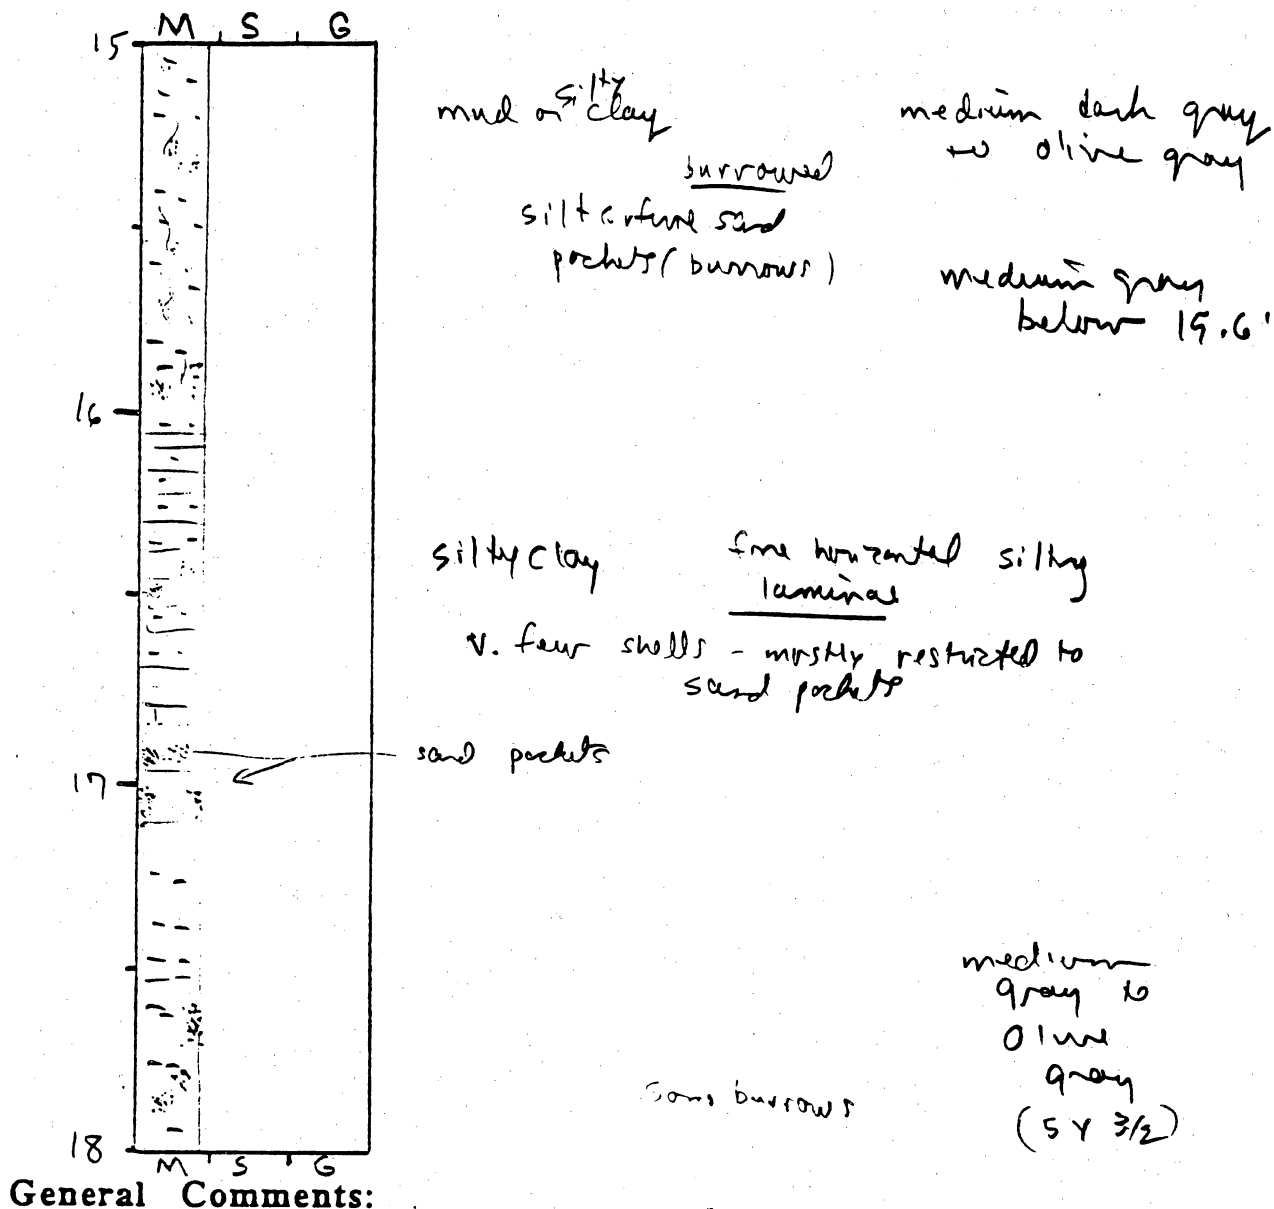 M S G
15
mud or silty clay
medium dark gray
to olive gray
burrowed
silt or fine sand
pockets (burrows)
medium gray
below 15.6'
16
silty clay fine horizontal silty
laminae
v. few shells - mostly restricted to
sand pockets
sand pockets
17
medium
gray to
olive
gray
(5 Y 3/2)
some burrows
18
M S G
General Comments: